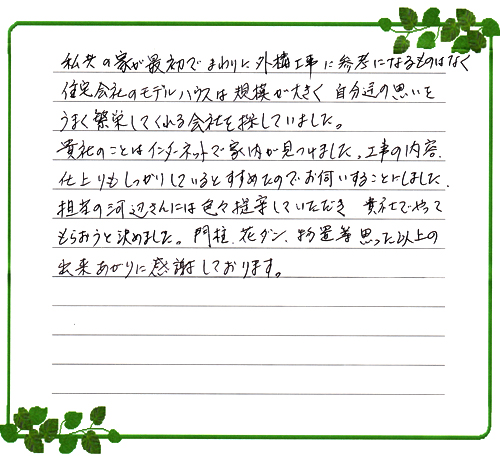 私共の家が最初でまわりに外構工事に参考になるものはなく
住宅会社のモデルハウスは規模が大きく 自分達の思いを
うまく繁栄してくれる会社を探していました。
貴社のことはインターネットで家内が見つけました。工事の内容、
仕上りもしっかりしているとすすめたのでお伺いすることにしました。
担当の河辺さんには色々提案していただき 貴社でやって
もらおうと決めました。門柱、花ダン、物置等思った以上の
出来あがりに感謝しております。